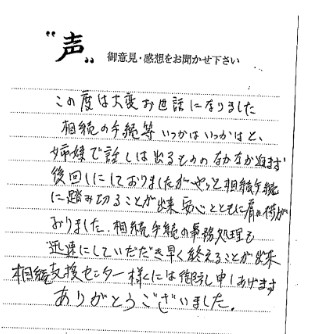 "声" 御意見・感想をお聞かせ下さい
この度は大変お世話になりました
相続の手続等いつかはいつかはと、
姉妹で話しは出るもののなかなか進まず
後回しにしておりましたがやっと相続手続
に踏み切ることが出来安心とともに肩の荷が
おりました。相続手続の事務処理も
迅速にしていただき早く終えることが出来
相続支援センター様には感謝し申しあげます
ありがとうございました。